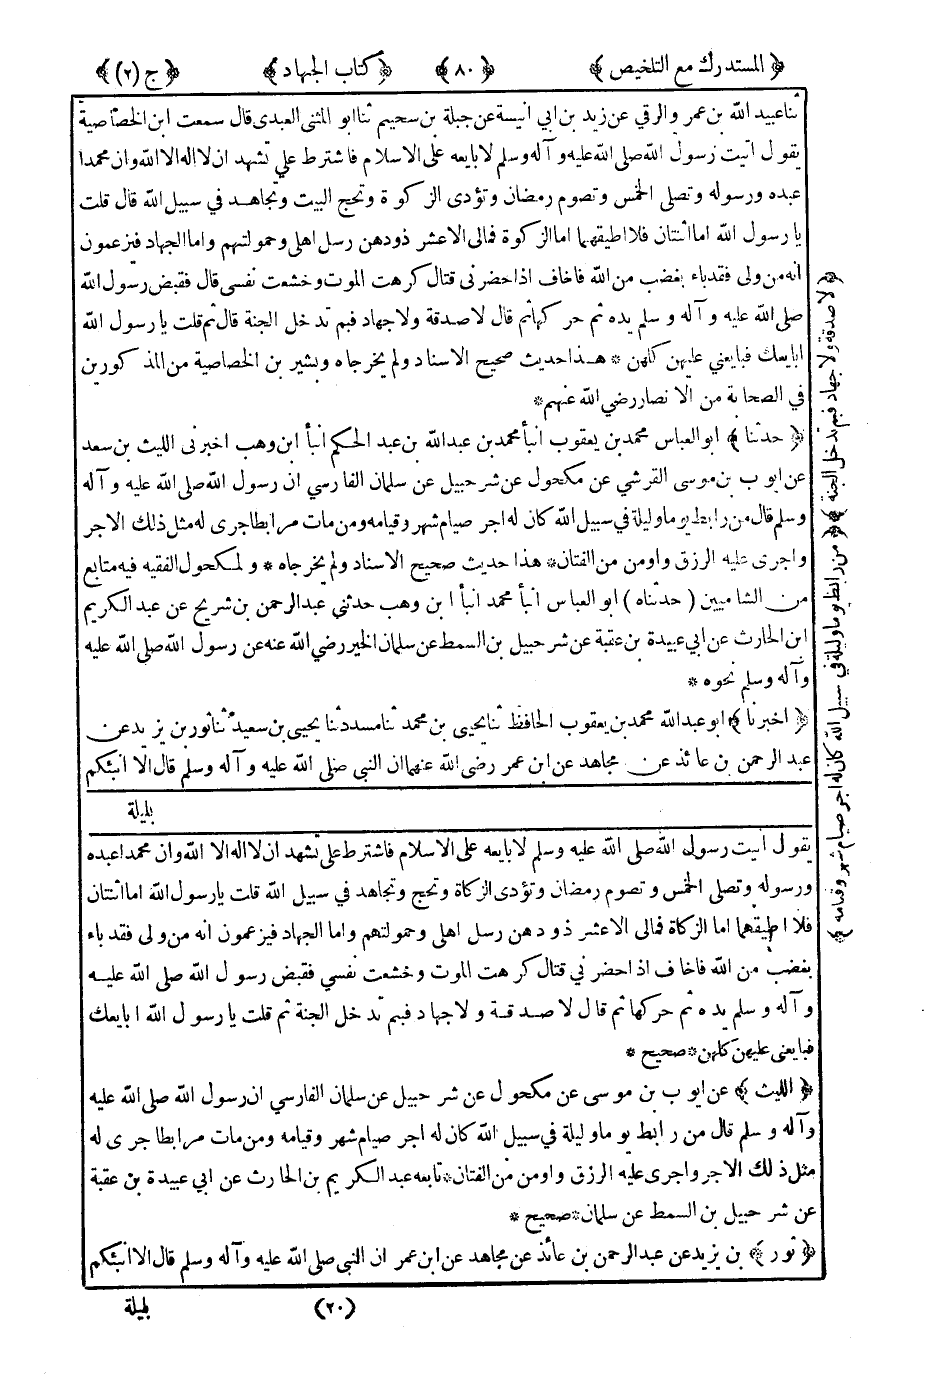 ﴿ المستدرك مع التلخيص ﴾ ﴿ ٨٠ ﴾ ﴿ كتاب الجهاد ﴾ ﴿ ج (٢) ﴾
ثنا عبيد الله بن عمرو الرقي عن زيد بن ابي انيسة عن جبلة بن سحيم ثنا ابو المثنى العبدى قال سمعت ابن الخصاصية
يقول اتيت رسول الله صلى الله عليه وآله وسلم لابايعه على الاسلام فاشترط علي تشهد ان لا اله الا الله وان محمدا
عبده ورسوله وتصلى الخمس وتصوم رمضان وتؤدى الزكوة وتحج البيت وتجاهد في سبيل الله قال قلت
يا رسول الله اما اثنتان فلا اطيقهما اما الزكوة فمالى الا عشر ذود هن رسل اهلى وحمولتهم واما الجهاد فيزعمون
انه من ولى فقد باء بغضب من الله فاخاف اذا حضرنى قتال كرهت الموت وخشعت نفسي قال فقبض رسول الله
صلى الله عليه وآله وسلم يده ثم حركها ثم قال لا صدقة ولا جهاد فبم تدخل الجنة قال ثم قلت يا رسول الله
ابايعك فبايعني عليهن كلهن * هذا حديث صحيح الاسناد ولم يخرجاه وبشير بن الخصاصية من المذكورين
في الصحابة من الانصار رضي الله عنهم *
﴿ حدثنا ﴾ ابو العباس محمد بن يعقوب انبأ محمد بن عبد الله بن عبد الحكم انبأ ابن وهب اخبرنى الليث بن سعد
عن ايوب بن موسى القرشي عن مكحول عن شرحبيل عن سلمان الفارسي ان رسول الله صلى الله عليه وآله
وسلم قال من رابط يوما وليلة في سبيل الله كان له اجر صيام شهر وقيامه ومن مات مرابطا جرى له مثل ذلك الاجر
واجرى عليه الرزق واومن من الفتان * هذا حديث صحيح الاسناد ولم يخرجاه * ولمكحول الفقيه فيه متابع
من الشاميين ( حدثناه ) ابو العباس انبأ محمد انبأ ابن وهب حدثني عبد الرحمن بن شريح عن عبد الكريم
ابن الحارث عن ابي عبيدة بن عقبة عن شرحبيل بن السمط عن سلمان الخير رضي الله عنه عن رسول الله صلى الله عليه
وآله وسلم نحوه *
﴿ اخبرنا ﴾ ابو عبد الله محمد بن يعقوب الحافظ ثنا يحيى بن محمد ثنا مسدد ثنا يحيى بن سعيد ثنا ثور بن يزيد عن
عبد الرحمن بن عائذ عن مجاهد عن ابن عمر رضي الله عنهما ان النبي صلى الله عليه وآله وسلم قال الا انبئكم
بليلة
يقول اتيت رسول الله صلى الله عليه وسلم لابايعه على الاسلام فاشترط على تشهد ان لا اله الا الله وان محمدا عبده
ورسوله وتصلى الخمس وتصوم رمضان وتؤدى الزكاة وتحج وتجاهد في سبيل الله قلت يا رسول الله اما اثنتان
فلا اطيقهما اما الزكاة فمالى الا عشر ذود هن رسل اهلى وحمولتهم واما الجهاد فيزعمون انه من ولى فقد باء
بغضب من الله فاخاف اذا حضرني قتال كرهت الموت وخشعت نفسي فقبض رسول الله صلى الله عليه
وآله وسلم يده ثم حركها ثم قال لا صدقة ولا جهاد فبم تدخل الجنة ثم قلت يا رسول الله ابايعك
فبايعنى عليهن كلهن * صحيح *
﴿ الليث ﴾ عن ايوب بن موسى عن مكحول عن شرحبيل عن سلمان الفارسي ان رسول الله صلى الله عليه
وآله وسلم قال من رابط يوما وليلة في سبيل الله كان له اجر صيام شهر وقيامه ومن مات مرابطا جرى له
مثل ذلك الاجر واجرى عليه الرزق واومن من الفتان * تابعه عبد الكريم بن الحارث عن ابي عبيدة بن عقبة
عن شرحبيل بن السمط عن سلمان * صحيح *
﴿ ثور ﴾ بن يزيد عن عبد الرحمن بن عائذ عن مجاهد عن ابن عمر ان النبي صلى الله عليه وآله وسلم قال الا انبئكم
(٢٠) بليلة
﴿ لا صدقة ولا جهاد فبم تدخل الجنة ﴾ ﴿ من رابط يوما وليلة في سبيل الله كان له اجر صيام شهر وقيامه ﴾